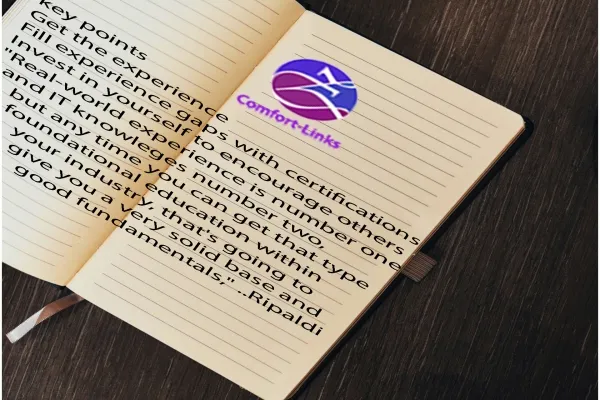 key points
Get the experience
Fill experience gaps with certifications
Invest in yourself to encourage others
"Real-world experience is number one
and IT knowleges number two,
but any time you can get that type
foundational education within
your industry, that's going to
give you a very solid base and
good fundamentals," ..Ripaldi
Comfort-Links